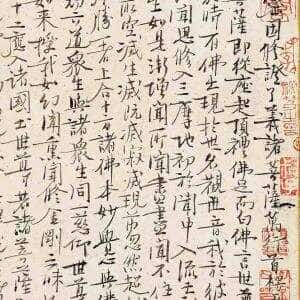 因修證了義諸菩薩萬行首楞
菩薩即從座起頂禮佛足而白佛言世尊
於時有佛出現於世名觀世音我於彼
聞思修入三摩地初於聞中入流亡
生如是漸增聞所聞盡盡聞不住
所空滅生滅既滅寂滅現前忽然超
勝一者上合十方諸佛本妙覺心與佛
六道眾生與諸眾生同一悲仰世尊
如來授我如幻聞熏聞修金剛三昧
十二應入諸國土世尊若諸菩薩